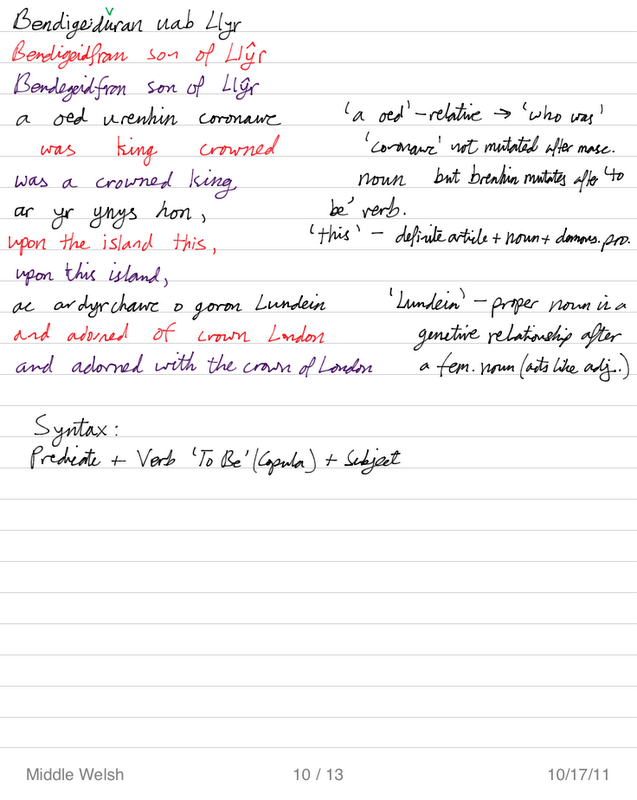 Bendigeiduran uab Llyr
v
Bendigeidfran son of Llŷr
Bendegeidfron son of Llŷr
a oed urenhin coronawc
was king crowned
was a crowned king,
ar yr ynys hon,
upon the island this,
upon this island,
ac ardyrchawc o goron Lundein
and adorned of crown London
and adorned with the crown of London
'a oed' – relative → 'who was'
'coronawc' not mutated after masc.
noun but brenhin mutates after 'to
be' verb.
'this' – definite article + noun + demons. pro.
'Lundein' – proper noun in a
genetive relationship after
a fem. noun (acts like adj..)
Syntax:
Predicate + Verb 'To Be' (Copula) + Subject
Middle Welsh
10 / 13
10/17/11